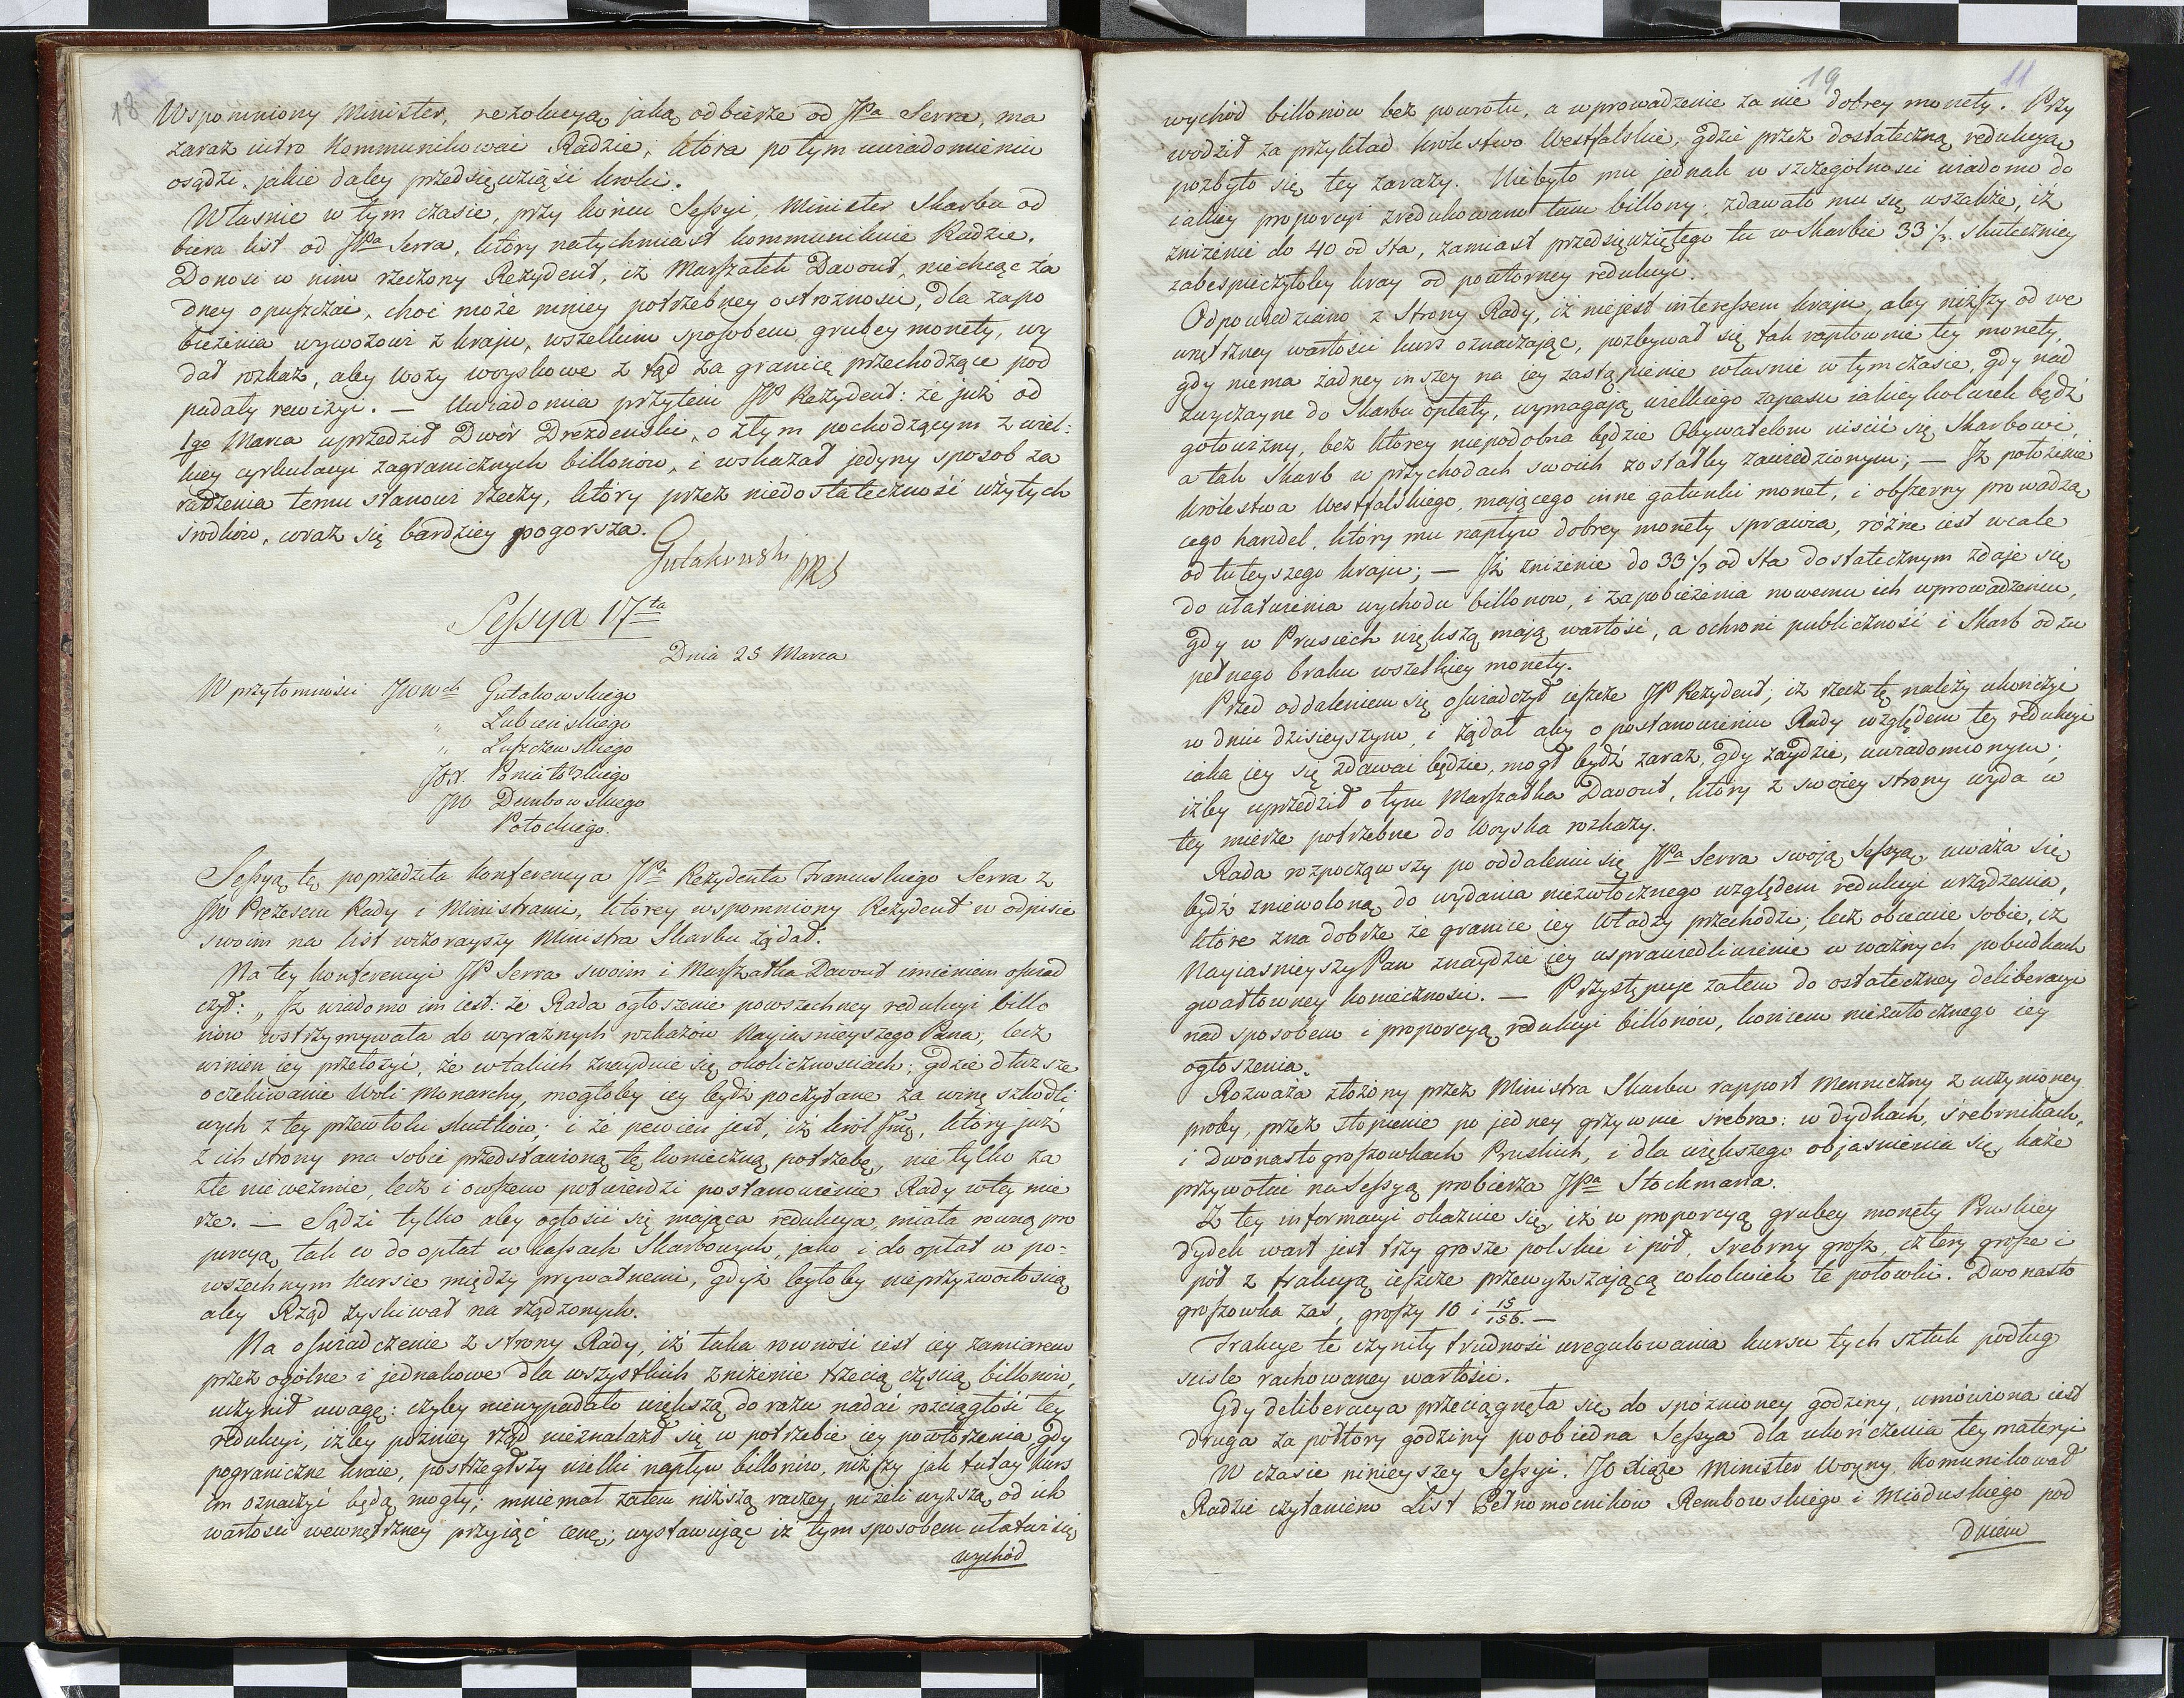 18
Wspomniony Minister, rezolucyą jaką odbierze od JPa Serra, ma
zaraz iutro Kommunikować Radzie, która po tym uwiadomieniu
osądzi, jakie daley przedsięwziąść kroki.
Własnie w tym czasie, przy końcu Seſsyi, Minister Skarbu od
biera list od JPa Serra, który natychmiast kommunikuie Radzie.
Donosi w nim rzeczony Rezydent, iż Marszałek Davout, niechcąc ża
dney opuſzczać, choć może mniey potrzebney ostrożności, dla zapo
bieżenia wywozowi z kraju, wszelkim sposobem, grubey monety, wy
dał rozkaz, aby wozy woyskowe z tąd za granicę przechodzące pod
padały rewizyi. — Uwiadomia przytem JP Rezydent: że już od
1go Marca uprzedził Dwór Drezdeński, o złym pochodzącym z wiel:
kiey cyrkulacyi zagranicznych billonów, i wskazał jedyny sposob za
radzenia temu stanowi rzeczy, który przez niedostateczność użytych
środków, coraz się bardziey pogorsza.
Gutakowski PRS
Seſsya 17ta
Dnia 25 Marca
W przytomności JWWch Gutakowskiego
" Lubieńskiego
" Łuſzczewskiego
JOX. Poniatowskiego
JW Dembowskiego
Potockiego.
Seſsyą tę poprzedziła Konferencya JPa Rezydenta Francuskiego Serra z
JW Prezesem Rady i Ministrami, którey wspomniony Rezydent w odpisie
swoim na list wczorayszy Ministra Skarbu żądał.
Na tey konferencyi JP Serra swoim i Marſzałka Davout imieniem oſwiad
czył: „ Iż wiadomo im iest: że Rada ogłoszenie powszechney redukcyi billo
nów wstrzymywała do wyraźnych rozkazów Nayiaśnieyszego Pana, lecz
winien iey przełożyć, że w takich znayduie się okolicznościach; gdzie dłuższe
oczekiwanie Woli Monarchy, mogłoby iey bydź poczytane za winę szkodli
wych z tey przewłoki skutków; i że pewien jest, iż król Jmć, który już
z ich strony ma sobie przedstawioną tę konieczną potrzebę, nie tylko za
złe nie weźmie, lecz i owſzem potwierdzi postanowienie Rady w tey mie
rze. — Sądzi tylko aby ogłosić się mająca redukcya, miała rowną pro
porcyą, tak co do opłat w kaſsach Skarbowych, jako i do opłat w po=
wszechnym kursie między prywatnemi, gdyż byłoby nieprzyzwoitością
aby Rząd zyskiwał na rządzonych.
Na oſwiadczenie z strony Rady, iż taka rowność iest iey zamiarem
przez ogólne i jednakowe dla wszystkich zniżenie trzecią częścią billonów,
uczynił uwagę: czyby niewypadało większą do razu nadać rozciągłość tey
redukcyi, iżby pozniey rząd nieznalazł się w potrzebie iey powtórzenia gdy
pograniczne kraie, postrzegłszy wielki napływ billonów, niższy jak tutay kurs
im oznaczyć będą mogły; mniemał zatem niższą raczey, niżeli wyższą od ich
wartości wewnętrzney przyiąć cenę; wystawując iż tym sposobem ułatwi się
wychód
19 11
wychód billonów bez powrotu, a wprowadzenie za nie dobrey monety. Przy
wodził za przykład królestwo Westfalskie, gdzie przez dostateczną redukcyą
pozbyto się tey zarazy. Niebyło mu jednak w szczególności wiadomo do
iakiey proporcyi zredukowano tam billony; zdawało mu się wszakże, iż
zniżenie do 40 od sta, zamiast przedsięwziętego tu w Skarbie 33⅓ skuteczniey
zabespieczyłoby kray od powtorney redukcyi.
Odpowiedziano z Strony Rady, iż niejest interessem kraju, aby niższy od we
wnętrzney wartości kurs oznaczając, pozbywał się tak raptownie tey monety,
gdy niema żadney inszey na iey zastąpienie własnie w tym czasie, gdy nad
zwyczayne do Skarbu opłaty, wymagają wielkiego zapasu iakieykolwiek bądź
gotowizny, bez którey niepodobna będzie Obywatelom uiścić się Skarbowi,
a tak Skarb w przychodach swoich zostałby zawiedzionym; — Iż położenie
królestwa Westfalskiego, mającego inne gatunki monet, i obſzerny prowadzą
cego handel, który mu napływ dobrey monety sprawia, różne iest wcale
od tuteyszego kraju; — Iż zniżenie do 33⅓ od sta dostatecznym zdaje się
do ułatwienia wychodu billonow, i zapobieżenia nowemu ich wprowadzeniu,
gdy w Prusiech większą mają wartość, a ochroni publiczność i Skarb od zu
pełnego braku wszelkiey monety.
Przed oddaleniem się oſwiadczył ieſzcze JP Rezydent; iż rzecz tę należy ukończyć
w dniu dzisieyszym, i żądał aby o postanowieniu Rady względem tey redukcyi
iaka iey się zdawać będzie, mogł bydź zaraz, gdy zaydzie, uwiadomionym;
iżby uprzedził o tym Marſzałka Davout, który z swoiey strony wyda w
tey mierze potrzebne do Woyska rozkazy.
Rada rozpocząwszy po oddaleniu się JPa Serra swoją Seſsyą, uważa się
bydź zniewoloną do wydania niezwłocznego względem redukcyi urządzenia,
które zna dobrze że granice iey Władzy przechodzi; lecz obiecuie sobie, iż
Nayiaśnieyszy Pan znaydzie iey usprawiedliwienie w ważnych pobudkach
gwałtowney konieczności. — Przystępuje zatem do ostateczney deliberacyi
nad sposobem i proporcyą redukcyi billonów, końcem niezwłocznego iey
ogłoszenia.
Rozważa złożony przez Ministra Skarbu rapport Menniczny z uczynioney
proby, przez stopienie po jedney grzywnie srebra: w dydkach, srebrnikach,
i dwónastogroſzowkach Pruskich, i dla większego objaśnienia się, każe
przywołać na Seſsyą probierza JPa Stockmana.
Z tey informacyi okazuie się, iż w proporcyą grubey monety Pruskiey
dydek wart jest trzy grosze polskie i pół, srebrny groſz, cztery groſze i
pół z frakcyą ieſzcze przewyższającą cokolwiek te połowki. Dwonasto
groſzowka zaś, groſzy 10 i 15/156. —
Frakcye te czyniły trudność uregulowania kursu tych sztuk podług
ściśle rachowaney wartości.
Gdy deliberacya przeciągnęła się do spóźnioney godziny, umówiona iest
druga za półtory godziny poobiedna Seſsya dla ukończenia tey materyi
W czasie ninieyszey Seſsyi. JO Xiąże Minister Woyny, komunikował
Radzie czytaniem List Pełnomocników Rembowskiego i Mioduskiego pod
dniem